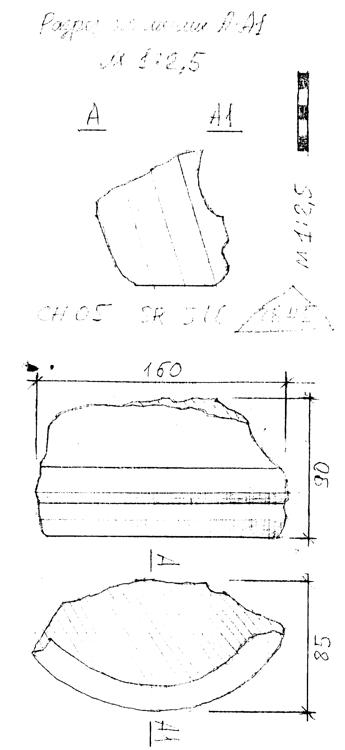 Разрез по линии А-А1
М 1:2,5
А А1
М 1:2,5
СН 05 SR
160
90
А
85
А1